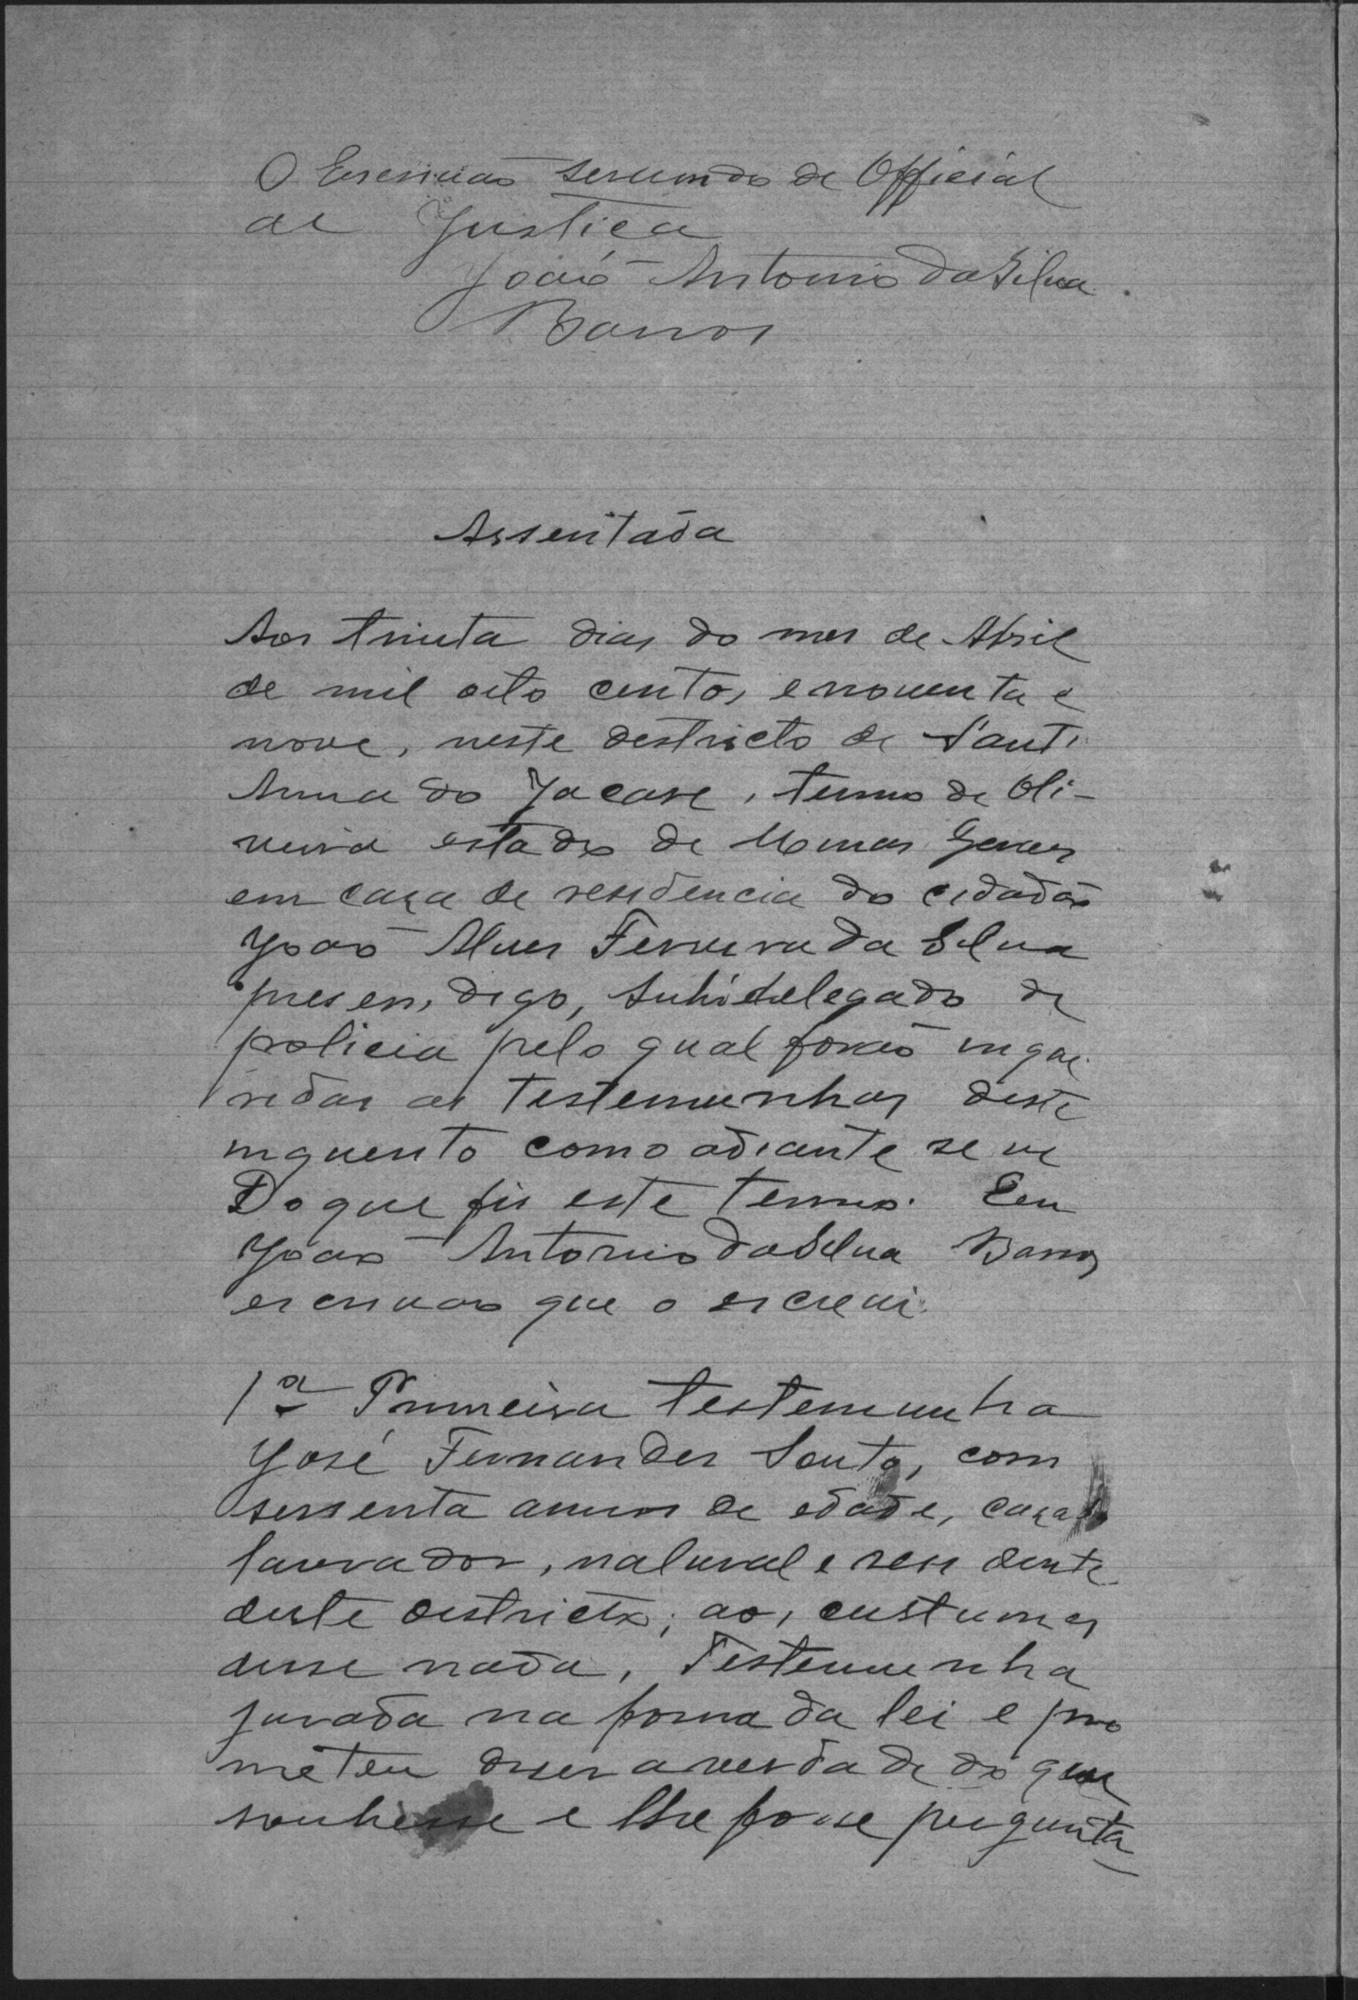 O Escrivão servindo de Official
de Justiça
João Antonio da Silva
Barros
Assentada
Aos trinta dias do mes de Abril
de mil oito centos e noventa e
nove, neste destricto de Sant'
Anna do Jacare, termo de Oli-
veira estado de Minas Geraes
em caza de residencia do cidadão
João Alves Ferreira da Silva
presen, digo, Subidelegado de
policia pelo qual forão inque
ridas as testemunhas deste
inquerito como adiante se ve
Do que fis este termo. Eeu
João Antonio da Silva Barros
escrivão que o escrevi.
1ª Primeira testemunha
José Fernandes Souto, com
sessenta annos de edade, cazado
lavrador, natural e residente
deste destricto, aos custumes
disse nada, Testemunha
jurada na forma da lei e pro
meteu diser a verdade do que
soubesse e lhe fosse pergunta